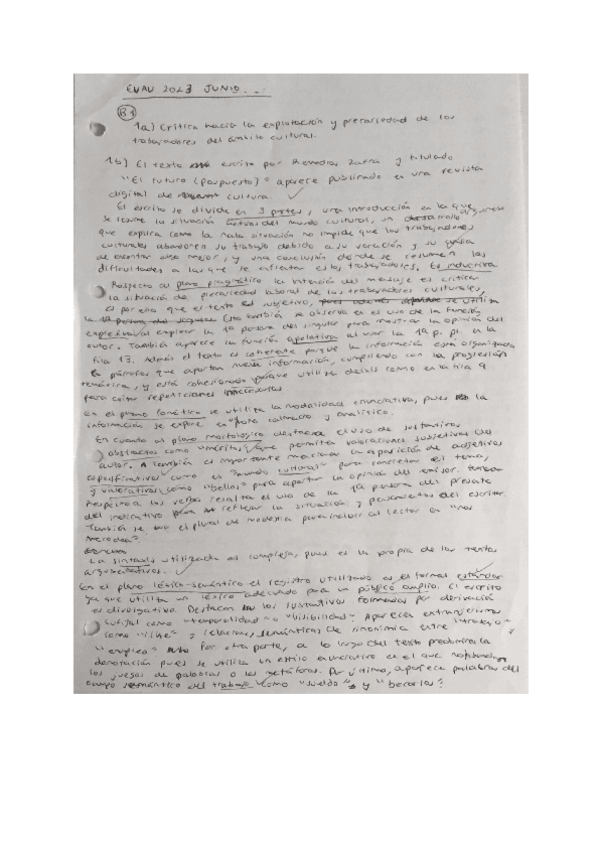 EVAU 2023 JUNIO...
B1
1a) Crítica hacia la explotación y precariedad de los
trabajadores del ámbito cultural.
1b) El texto escrito por Remedios Zafra y titulado
"El futuro (pospuesto)" aparece publicado en una revista
digital de cultura.
El escrito se divide en 3 partes, una introducción en la que
se resume la situación actual del mundo cultural, un desarrollo
que explica como la mala situación no impide que los trabajadores
culturales abandonen su trabajo debido a su vocación y su
de encontrar algo mejor, y una conclusión donde se resumen las
dificultades a las que se enfrentan estos trabajadores. Es inductiva
Respecto al plano pragmático la intención del mensaje es criticar
la situación de precariedad laboral de los trabajadores culturales,
es por ello que el texto es subjetivo, se utiliza
la también se observa en el uso de la función
expresiva al emplear la 1ª persona del singular para mostrar la opinión del
autor. También aparece la función apelativa al usar la 1ª p. pl. en la
fila 13. Además el texto es coherente porque la información está organizada
en párrafos que aportan nueva información, cumpliendo con la progresión
temática, y está cohesionado porque utiliza deixis como en la fila 9
para evitar repeticiones
En el plano se utiliza la modalidad enunciativa, pues la
información se expone en tono calmado y analítico.
En cuanto al plano morfológico destaca el uso de sustantivos
abstractos como que permiten valoraciones subjetivas del
autor. También es importante mencionar la aparición de adjetivos
especificativos como es "mundo cultural" para concretar el tema,
y valorativos como "bellos" para aportar la opinión del emisor.
Respecto a los verbos resalta el uso de la 1ª persona del presente
del indicativo para reflejar la situación y pensamientos del escritor.
También se usa el plural de modestia para incluir al lector en "nos
La sintaxis utilizada es compleja, pues es la propia de los textos
argumentativos.
En el plano léxico-semántico el registro utilizado es el formal estándar
ya que utiliza un léxico adecuado para un público amplio. El escrito
es divulgativo. Destacan los sustantivos formados por derivación
sufijal como "temporalidad" o "visibilidad". Aparecen extranjerismos
como "like" y relaciones semánticas de sinonimia entre "trabajo"
y "empleo" Por otra parte, a lo largo del texto predomina la
denotación pues se utiliza un estilo enunciativo en el que no
los juegos de palabras o las metáforas. Por último, aparece palabras del
campo semántico del trabajo como "sueldo" y "becarios".